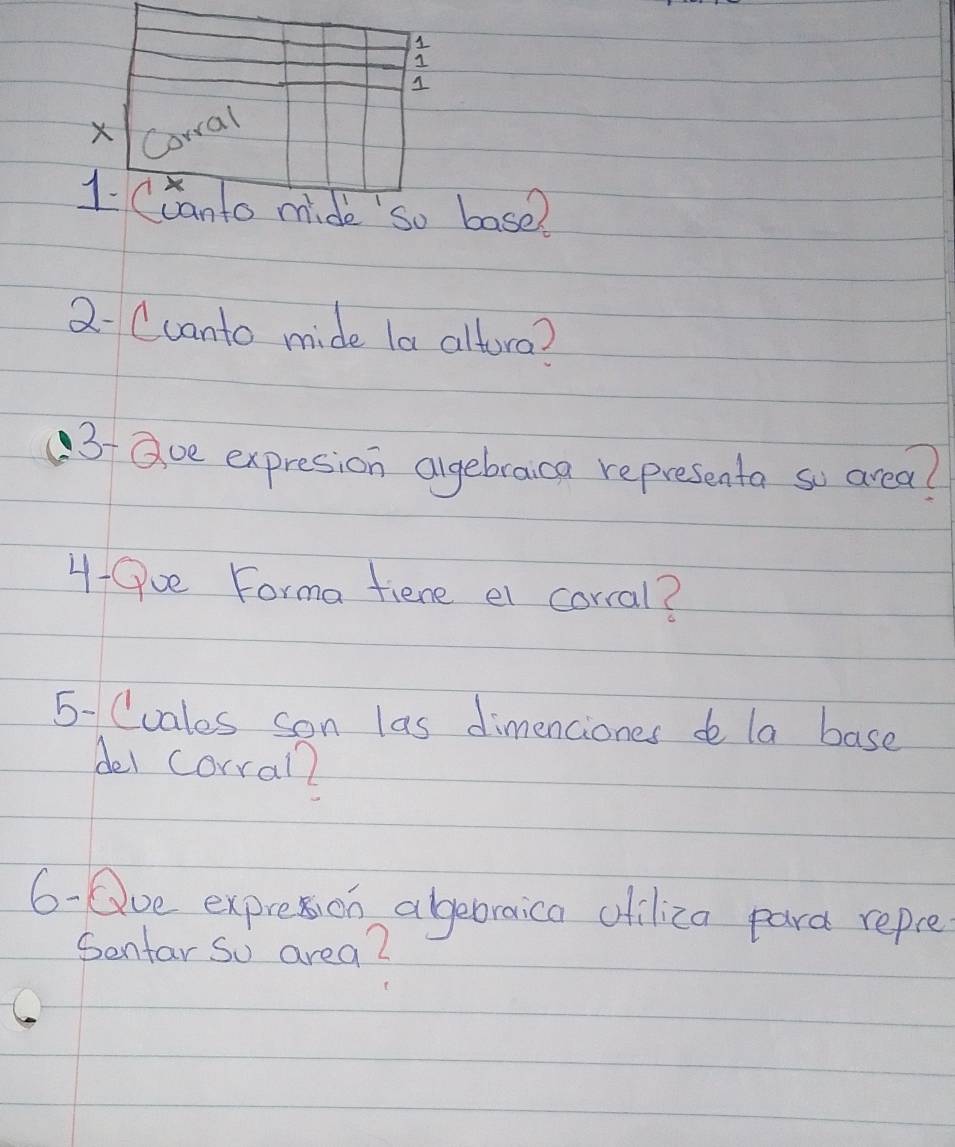 1
1
1
x Corral
x
1- Cuanto mide so base?
2- Cuanto mide la altura?
3- Que expresión algebraica representa su area?
4- Que Forma tiene el corral?
5- Cuales son las dimenciones de la base
del Corral?
6- Que expresión algebraica utiliza para repre-
sentar su area?